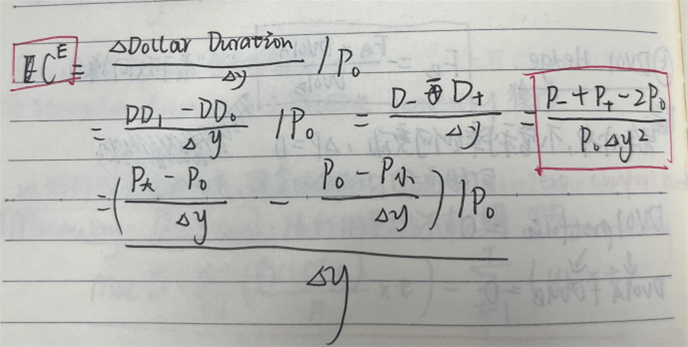 C^E = ΔDollar Duration / Δy / P₀
= DD₁ - DD₀ / Δy / P₀ = D₋ D₊ / Δy = P₋ + P₊ - 2P₀ / P₀Δy²
= (P大 - P₀ / Δy - P₀ - P小 / Δy) / P₀
Δy